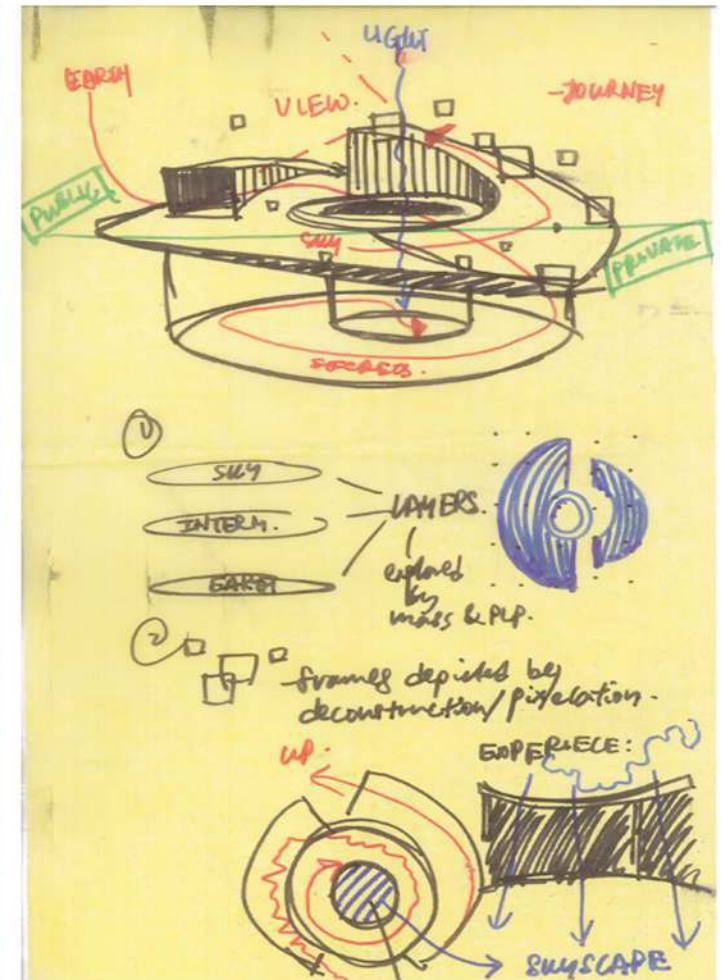 LIGHT
EARTH
VIEW.
-JOURNEY
PUBLIC
SKY
PRIVATE
1
SKY
INTERM.
LAYERS.
EARTH
explored
by
mass & PLP.
2
frames depicted by
deconstruction/pixelation.
UP.
EXPERIECE:
SKYSCAPE